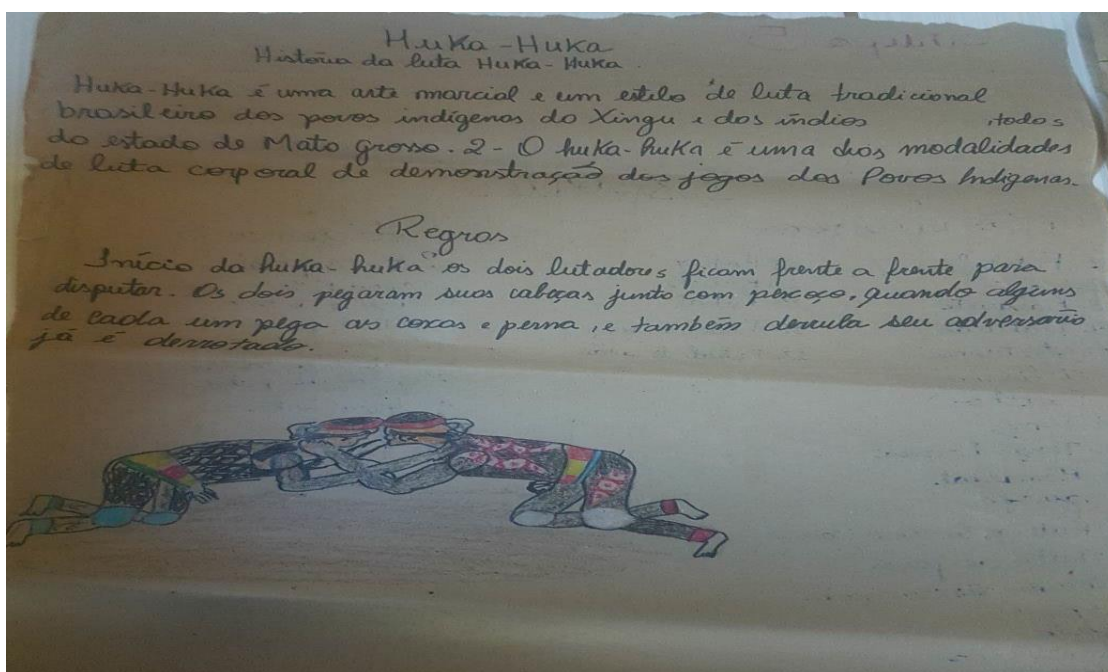 Huka-Huka
História da luta Huka-Huka.
Huka-Huka é uma arte marcial e um estilo de luta tradicional
brasileiro dos povos indígenas do Xingu e dos índios , todos
do estado de Mato grosso. 2- O huka-huka é uma das modalidades
de luta corporal de demonstração dos jogos dos Povos Indígenas.
Regras
Início da huka-huka os dois lutadores ficam frente a frente para
disputar. Os dois pegaram suas cabeças junto com pescoço, quando alguns
de cada um pega as coxas e perna, e também derruba seu adversário
já é derrotado.